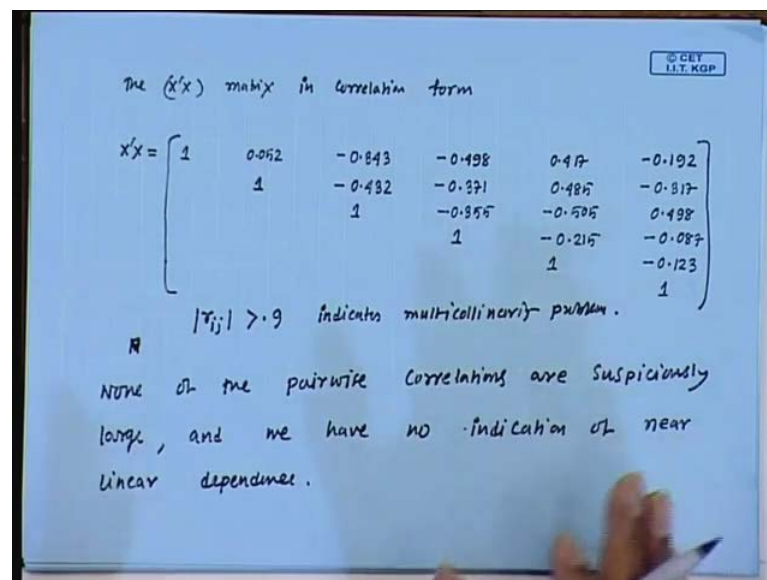 © CET
I.I.T. KGP
The (X'X) matrix in correlation form
X'X = [ 1 0.052 -0.343 -0.498 0.417 -0.192
1 -0.432 -0.371 0.485 -0.317
1 -0.355 -0.505 0.498
1 -0.215 -0.087
1 -0.123
1 ]
|rij| > .9 indicates multicollinearity problem.
None of the pairwise correlations are suspiciously
large, and we have no indication of near
linear dependence.